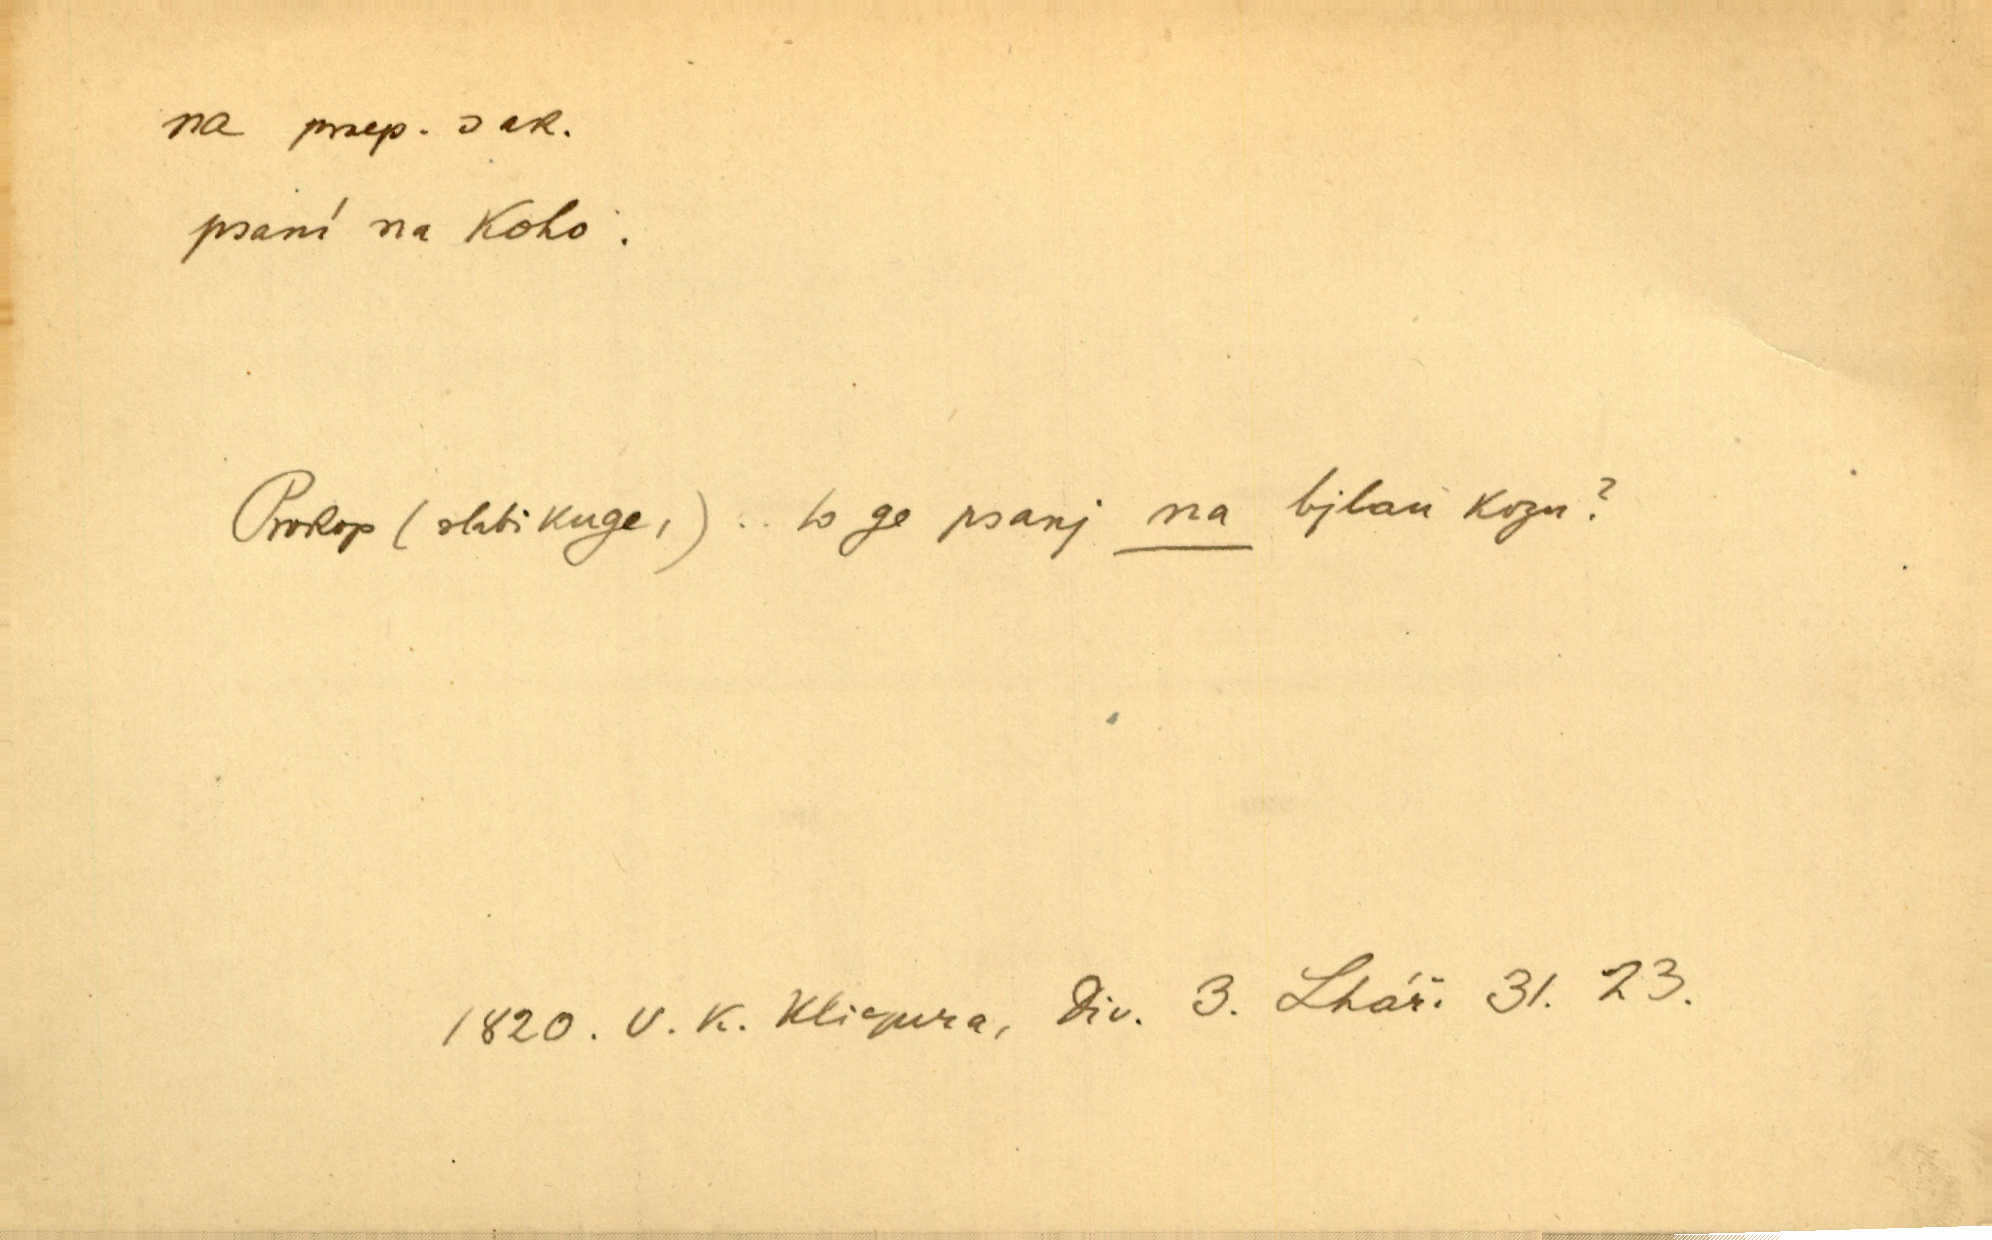 na praep. s ak.
psaní na koho.
Prokop (slabikuge,) .. to ge psanj na bjlau kozu?
1820. V. K. Klicpera, Div. 3. Lhář. 31. 23.